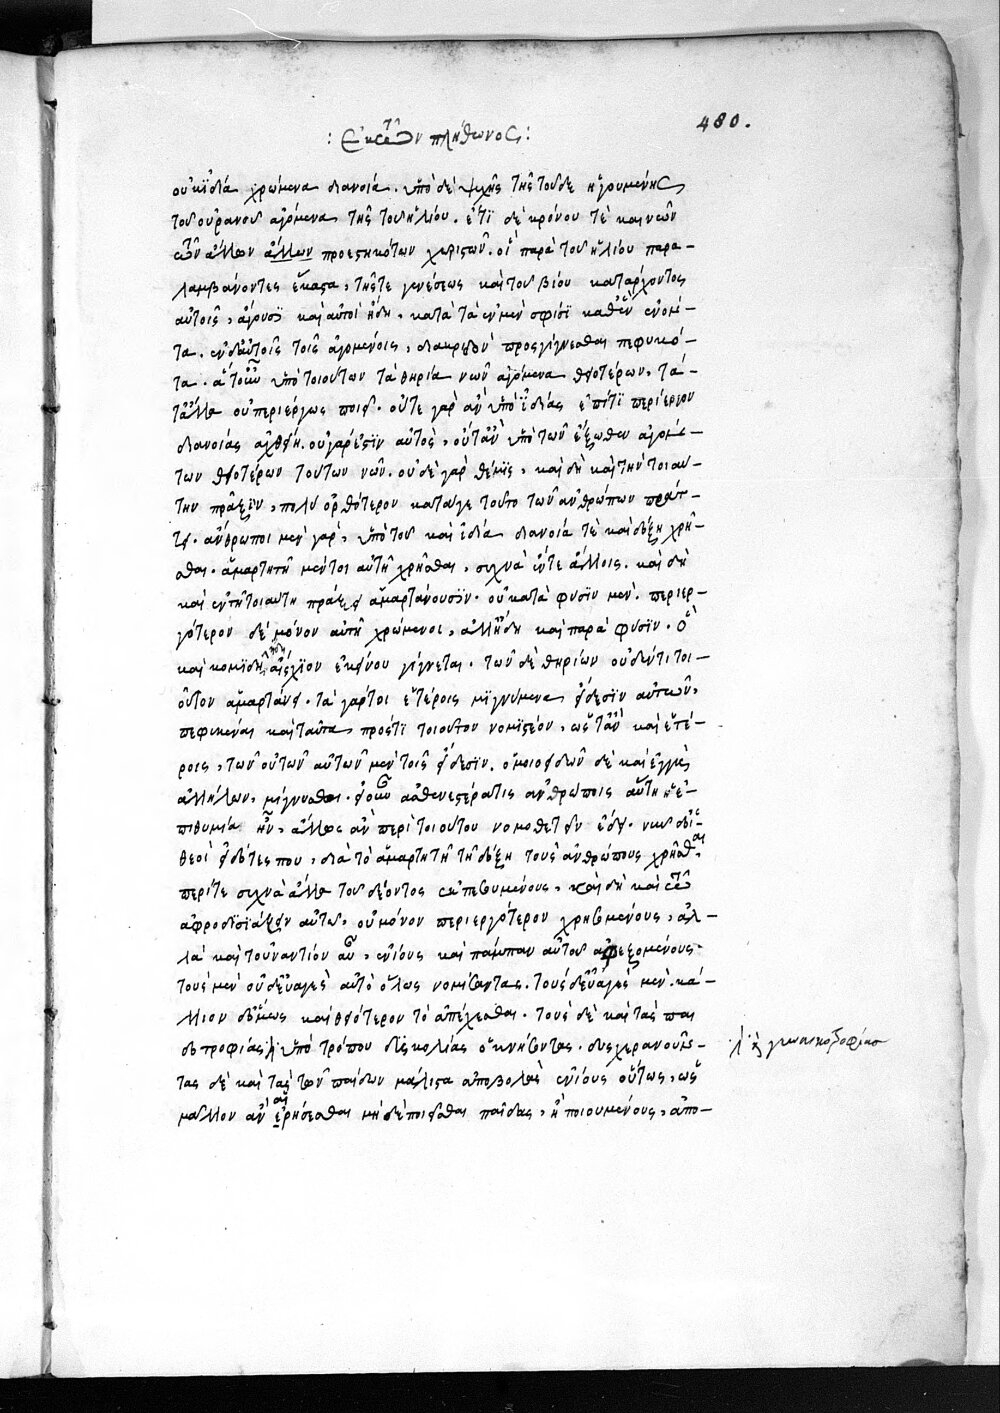 480.
: Ἐκ τῶν πλήθωνος :
οὐκ ἰδία χρώμενα διανοία. ὑπὸ δὲ ψυχῆς τῆς τοῦδε ἡγουμένης
τοῦ οὐρανοῦ ἀγόμενα, τῆς τοῦ ἡλίου. ἔτι δὲ κρόνου τὲ καὶ νῶν
τῶν ἄλλων ἄλλων προεστηκότων χωριστῶν. οἳ παρὰ τοῦ ἡλίου παρα-
λαμβάνοντες ἕκαστα, τῆς τε γενέσεως καὶ τοῦ βίου κατάρχοντος
αὐτοῖς, ἄγουσι καὶ αὐτοὶ ἤδη, κατὰ τὰ ἐν μὲν σφίσι καθ' ἓν ἑνομέ-
τα. ἐν δ' αὐτοῖς τοῖς ἀγομένοις, διακριδὸν προσγίγνεσθαι πεφυκό-
τα. ἅτ' οὖν ὑπὸ τοιούτων τὰ θηρία νῶν ἀγόμενα θειοτέρων, τά-
τἄλλα οὐ περιέργως ποιεῖ. οὔτε γὰρ ἂν ὑπὸ ἰδίας ἐπί τι περίεργον
διανοίας ἀχθείη. οὐ γάρ ἐστιν αὐτοῖς, οὔτ' ἂν ὑπὸ τῶν ἔξωθεν ἀγόν-
των θειοτέρων τούτων νῶν. οὐδὲ γὰρ θέμις, καὶ δὴ καὶ τὴν τοιαύ-
την πρᾶξιν, πολὺ ὀρθότερον κατά γε τοῦτο τῶν ἀνθρώπων πράτ-
τει. ἄνθρωποι μὲν γὰρ, ὑπὸ τοῦ καὶ ἰδία διανοία τὲ καὶ δόξῃ χρῆ-
σθαι. ἁμαρτητῇ μέντοι αὐτῇ χρῆσθαι, συχνὰ ἔν τε ἄλλοις. καὶ δὴ
καὶ ἐν τῇ τοιαύτῃ πράξει ἁμαρτάνουσιν. οὐ κατὰ φύσιν μὲν. περιερ-
γότερον δὲ μόνον αὐτῇ χρώμενοι, ἀλλ' ἤδη καὶ παρὰ φύσιν. ὃ
καὶ κομιδῇ αἴσχιον ἐκείνου γίγνεται. τῶν δὲ θηρίων οὐδέν τι τοι-
οῦτον ἁμαρτάνει. τὰ γάρ τοι ἑτέροις μιγνύμενα εἴδεσιν αὐτῶν,
πεφυκέναι καὶ ταῦτα πρός τι τοιοῦτον νομιστέον, ὥς τ' ἂν καὶ ἑτέ-
ροις, τῶν οὐ τῶν αὐτῶν μὲν τοῖς εἴδεσιν. ὁμοιοειδῶν δὲ καὶ ἐγγὺς
ἀλλήλων, μίγνυσθαι. εἰ οὖν ἀσθενεστέρα τις ἀνθρώποις αὕτη ἡ ἐ-
πιθυμία ἦν, ἄλλως ἂν περὶ τοιούτου νομοθετεῖν ἔδει. νῦν δ' οἱ
θεοὶ εἰδότες που, διὰ τὸ ἁμαρτητῇ τῇ δόξῃ τοὺς ἀνθρώπους χρῆσθαι,
περί τε συχνὰ ἄλλα τοῦ δέοντος ἐκπεσουμένους, καὶ δὴ καὶ τῶ
ἀφροδισιάζειν αὐτῶ, οὐ μόνον περιεργότερον χρησομένους, ἀλ-
λὰ καὶ τοὐναντίον αὖ, ἐνίους καὶ πάμπαν αὐτοῦ ἀφεξομένους.
τοὺς μὲν οὐδ' εὐαγὲς αὐτὸ ὅλως νομίσαντας. τοὺς δ' εὐαγὲς μὲν. κά-
λλιον δ' ὅμως καὶ θειότερον τὸ ἀπέχεσθαι. τοὺς δὲ καὶ τὰς παι
δοτροφίας ὑπὸ τρόπου δυσκολίας ὀκνήσοντας. δυσχεραινοῦν-
τας δὲ καὶ τὰς τῶν παίδων μάλιστα ἀποβολὰς ἐνίους οὕτως, ὡς
μᾶλλον ἂν αἱρήσεσθαι μηδὲ ποιεῖσθαι παῖδας, ἢ ποιουμένους, ἀπο-